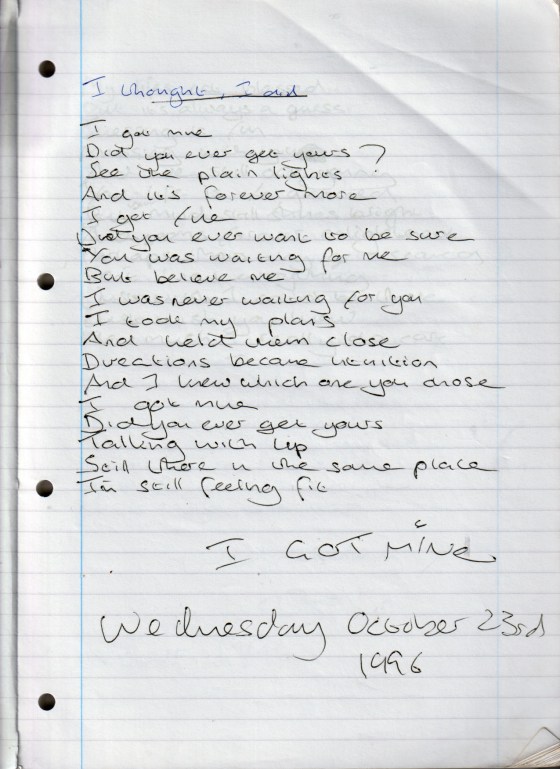 I thought, I did
I got mine
Did you ever get yours?
See the plain lights
And it's forever more
I got
Did you ever want to be sure
You was waiting for me
But believe me
I was never waiting for you
I took my plans
And held them close
Directions became
And I knew which one you chose
I got mine
Did you ever get yours
Talking with
Still there in the same place
I'm still feeling fit
I GOT MiNe.
Wednesday October 23rd
1996